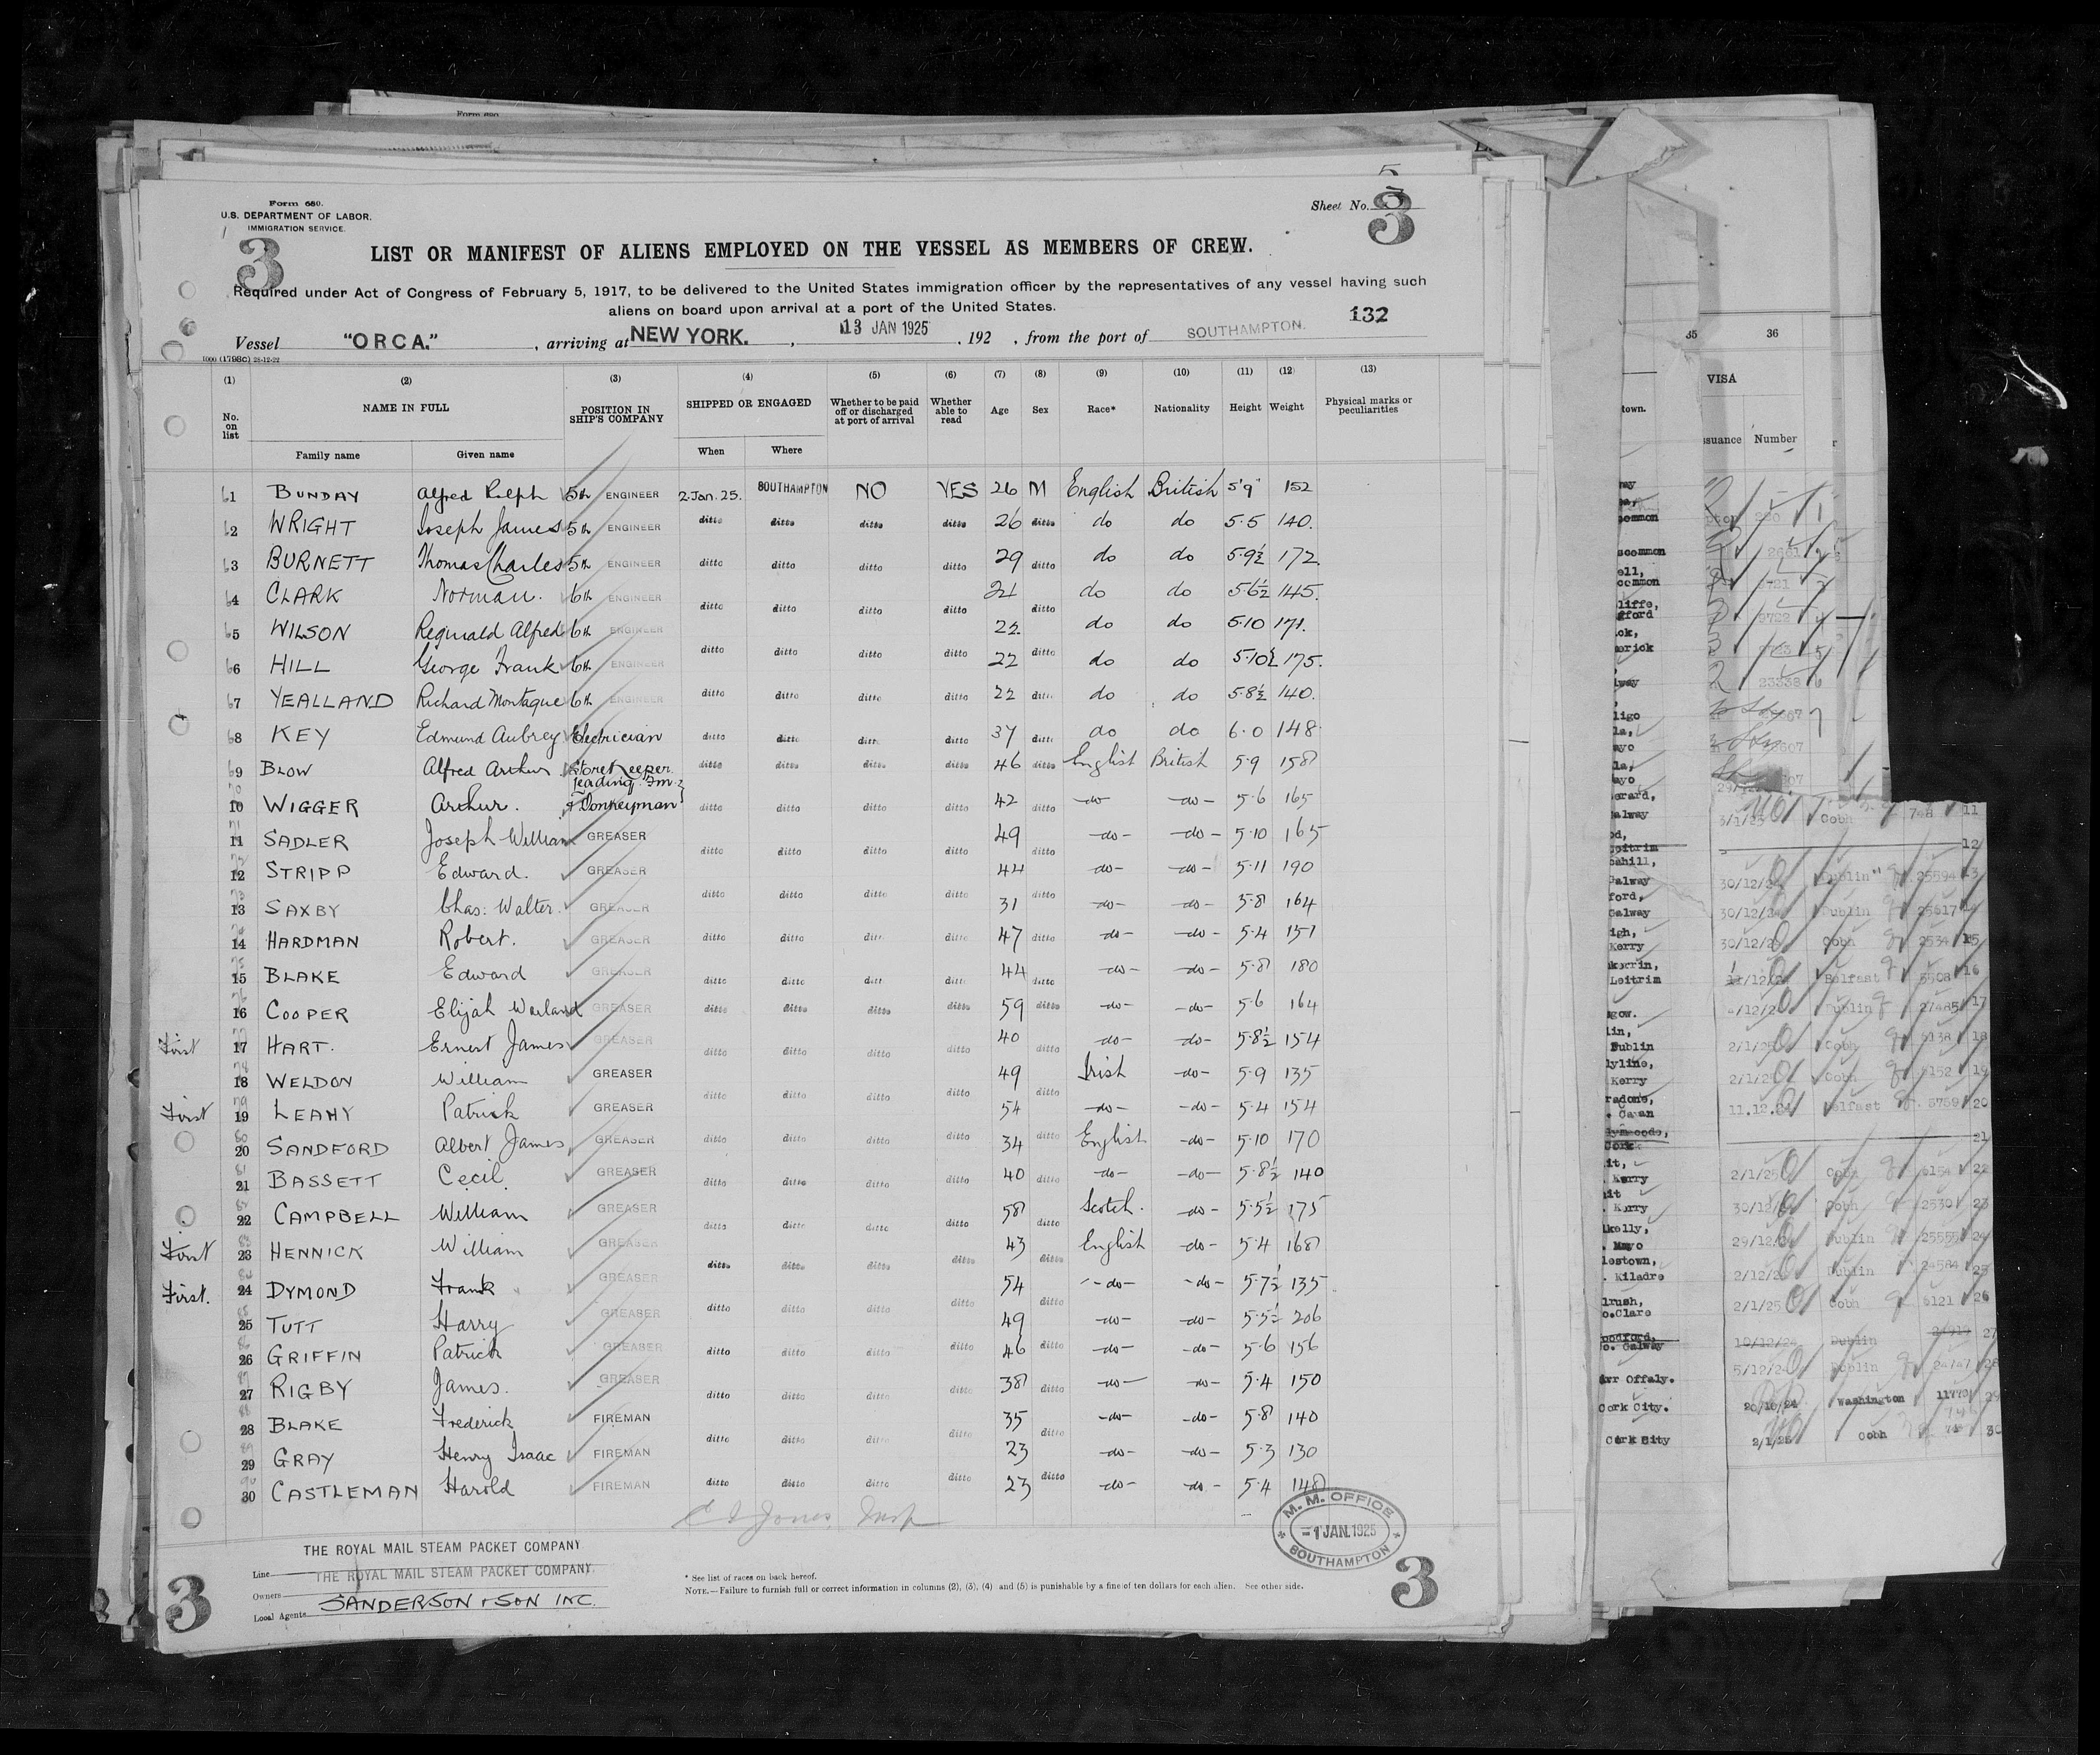 Form 680.
U.S. DEPARTMENT OF LABOR.
IMMIGRATION SERVICE.
3
Sheet No. 5
3
LIST OR MANIFEST OF ALIENS EMPLOYED ON THE VESSEL AS MEMBERS OF CREW.
Required under Act of Congress of February 5, 1917, to be delivered to the United States immigration officer by the representatives of any vessel having such
aliens on board upon arrival at a port of the United States.
132
Vessel "ORCA." , arriving at NEW YORK. , 13 JAN 1925 , 192 , from the port of SOUTHAMPTON.
1000 (1798C) 28-12-22
(1) (2) (3) (4) (5) (6) (7) (8) (9) (10) (11) (12) (13)
No. on list NAME IN FULL POSITION IN SHIP'S COMPANY SHIPPED OR ENGAGED Whether to be paid off or discharged at port of arrival Whether able to read Age Sex Race* Nationality Height Weight Physical marks or peculiarities
Family name Given name When Where
61 BUNDAY Alfred Ralph 5th ENGINEER 2 Jan. 25. SOUTHAMPTON NO YES 26 M English British 5'9" 152
62 WRIGHT Joseph James 5th ENGINEER ditto ditto ditto ditto 26 ditto do do 5.5 140.
63 BURNETT Thomas Charles 5th ENGINEER ditto ditto ditto ditto 29 ditto do do 5.9½ 172.
64 CLARK Norman. 6th ENGINEER ditto ditto ditto ditto 21 ditto do do 5.6½ 145.
65 WILSON Reginald Alfred 6th ENGINEER 22 do do 5.10 171.
66 HILL George Frank 6th ENGINEER ditto ditto ditto ditto 22 ditto do do 5.10½ 175.
67 YEALLAND Richard Montague 6th ENGINEER ditto ditto ditto ditto 22 ditto do do 5.8½ 140.
68 KEY Edmund Aubrey Electrician ditto ditto ditto ditto 37 ditto do do 6.0 148.
69 BLOW Alfred Arthur Storekeeper. ditto ditto ditto ditto 46 ditto English British 5.9 158
Leading Fm.
70 10 WIGGER Arthur. & Donkeyman ditto ditto ditto ditto 42 ditto -do- -do- 5.6 165
71 11 SADLER Joseph William GREASER ditto ditto ditto ditto 49 ditto -do- -do- 5.10 165
72 12 STRIPP Edward. GREASER 44 -do- -do- 5.11 190
73 13 SAXBY Chas: Walter. GREASER ditto ditto ditto ditto 31 ditto -do- -do- 5.8 164
74 14 HARDMAN Robert. GREASER ditto ditto ditto ditto 47 ditto -do- -do- 5.4 151
75 15 BLAKE Edward GREASER ditto ditto ditto ditto 44 ditto -do- -do- 5.8 180
76 16 COOPER Elijah GREASER ditto ditto ditto ditto 59 ditto -do- -do- 5.6 164
First 77 17 HART. Ernest James GREASER ditto ditto ditto ditto 40 ditto -do- -do- 5.8½ 154
78 18 WELDON William GREASER ditto ditto ditto ditto 49 ditto Irish -do- 5.9 135
First 79 19 LEAHY Patrick GREASER 54 -do- -do- 5.4 154
80 20 SANDFORD Albert James GREASER ditto ditto ditto ditto 34 ditto English -do- 5.10 170
81 21 BASSETT Cecil. GREASER ditto ditto ditto ditto 40 ditto -do- -do- 5.8½ 140
82 22 CAMPBELL William GREASER ditto ditto ditto ditto 58 ditto Scotch. -do- 5.5½ 175
First 83 23 HENNICK William GREASER 43 English -do- 5.4 168
First. 84 24 DYMOND Frank GREASER ditto ditto ditto ditto 54 ditto -do- -do- 5.7½ 135
85 25 TUTT Harry GREASER ditto ditto ditto ditto 49 ditto -do- -do- 5.5½ 206
86 26 GRIFFIN Patrick GREASER ditto ditto ditto ditto 46 ditto -do- -do- 5.6 156
87 27 RIGBY James. GREASER ditto ditto ditto ditto 38 ditto -do- -do- 5.4 150
88 28 BLAKE Frederick FIREMAN 35 -do- -do- 5.8 140
89 29 GRAY Henry Isaac FIREMAN ditto ditto ditto ditto 23 ditto -do- -do- 5.3 130
90 30 CASTLEMAN Harold FIREMAN ditto ditto ditto ditto 23 ditto -do- -do- 5.4 148
Jones Insp
M. M. OFFICE
-1 JAN. 1925
SOUTHAMPTON
THE ROYAL MAIL STEAM PACKET COMPANY
Line THE ROYAL MAIL STEAM PACKET COMPANY.
Owners
Local Agents SANDERSON & SON INC.
* See list of races on back hereof.
NOTE.—Failure to furnish full or correct information in columns (2), (3), (4) and (5) is punishable by a fine of ten dollars for each alien. See other side.
3
3
35 36
VISA
town.
Number
3/1/25 Cobh 11
12
30/12/24 Dublin 25594
30/12/24 Dublin 25617
Kerry 30/12/24 Cobh 2534 15
Leitrim Belfast 5508 16
Dublin 27485 17
Dublin 2/1/25 Cobh 6138 18
Kerry 2/1/25 Cobh 6152 19
11.12.24 Belfast 5759 20
Cork 21
Kerry 2/1/25 Cobh 6154 22
Kerry 30/12/24 Cobh 2530 23
Mayo 29/12/24 Dublin 25555 24
Kildare 2/12/24 Dublin 24584 25
o.Clare 2/1/25 Cobh 6121 26
o. Galway 19/12/24 Dublin 27
Offaly. 5/12/24 Dublin 24747 28
Cork City. 20/10/24 Washington 29
Cork City 2/1/25 Cobh 30